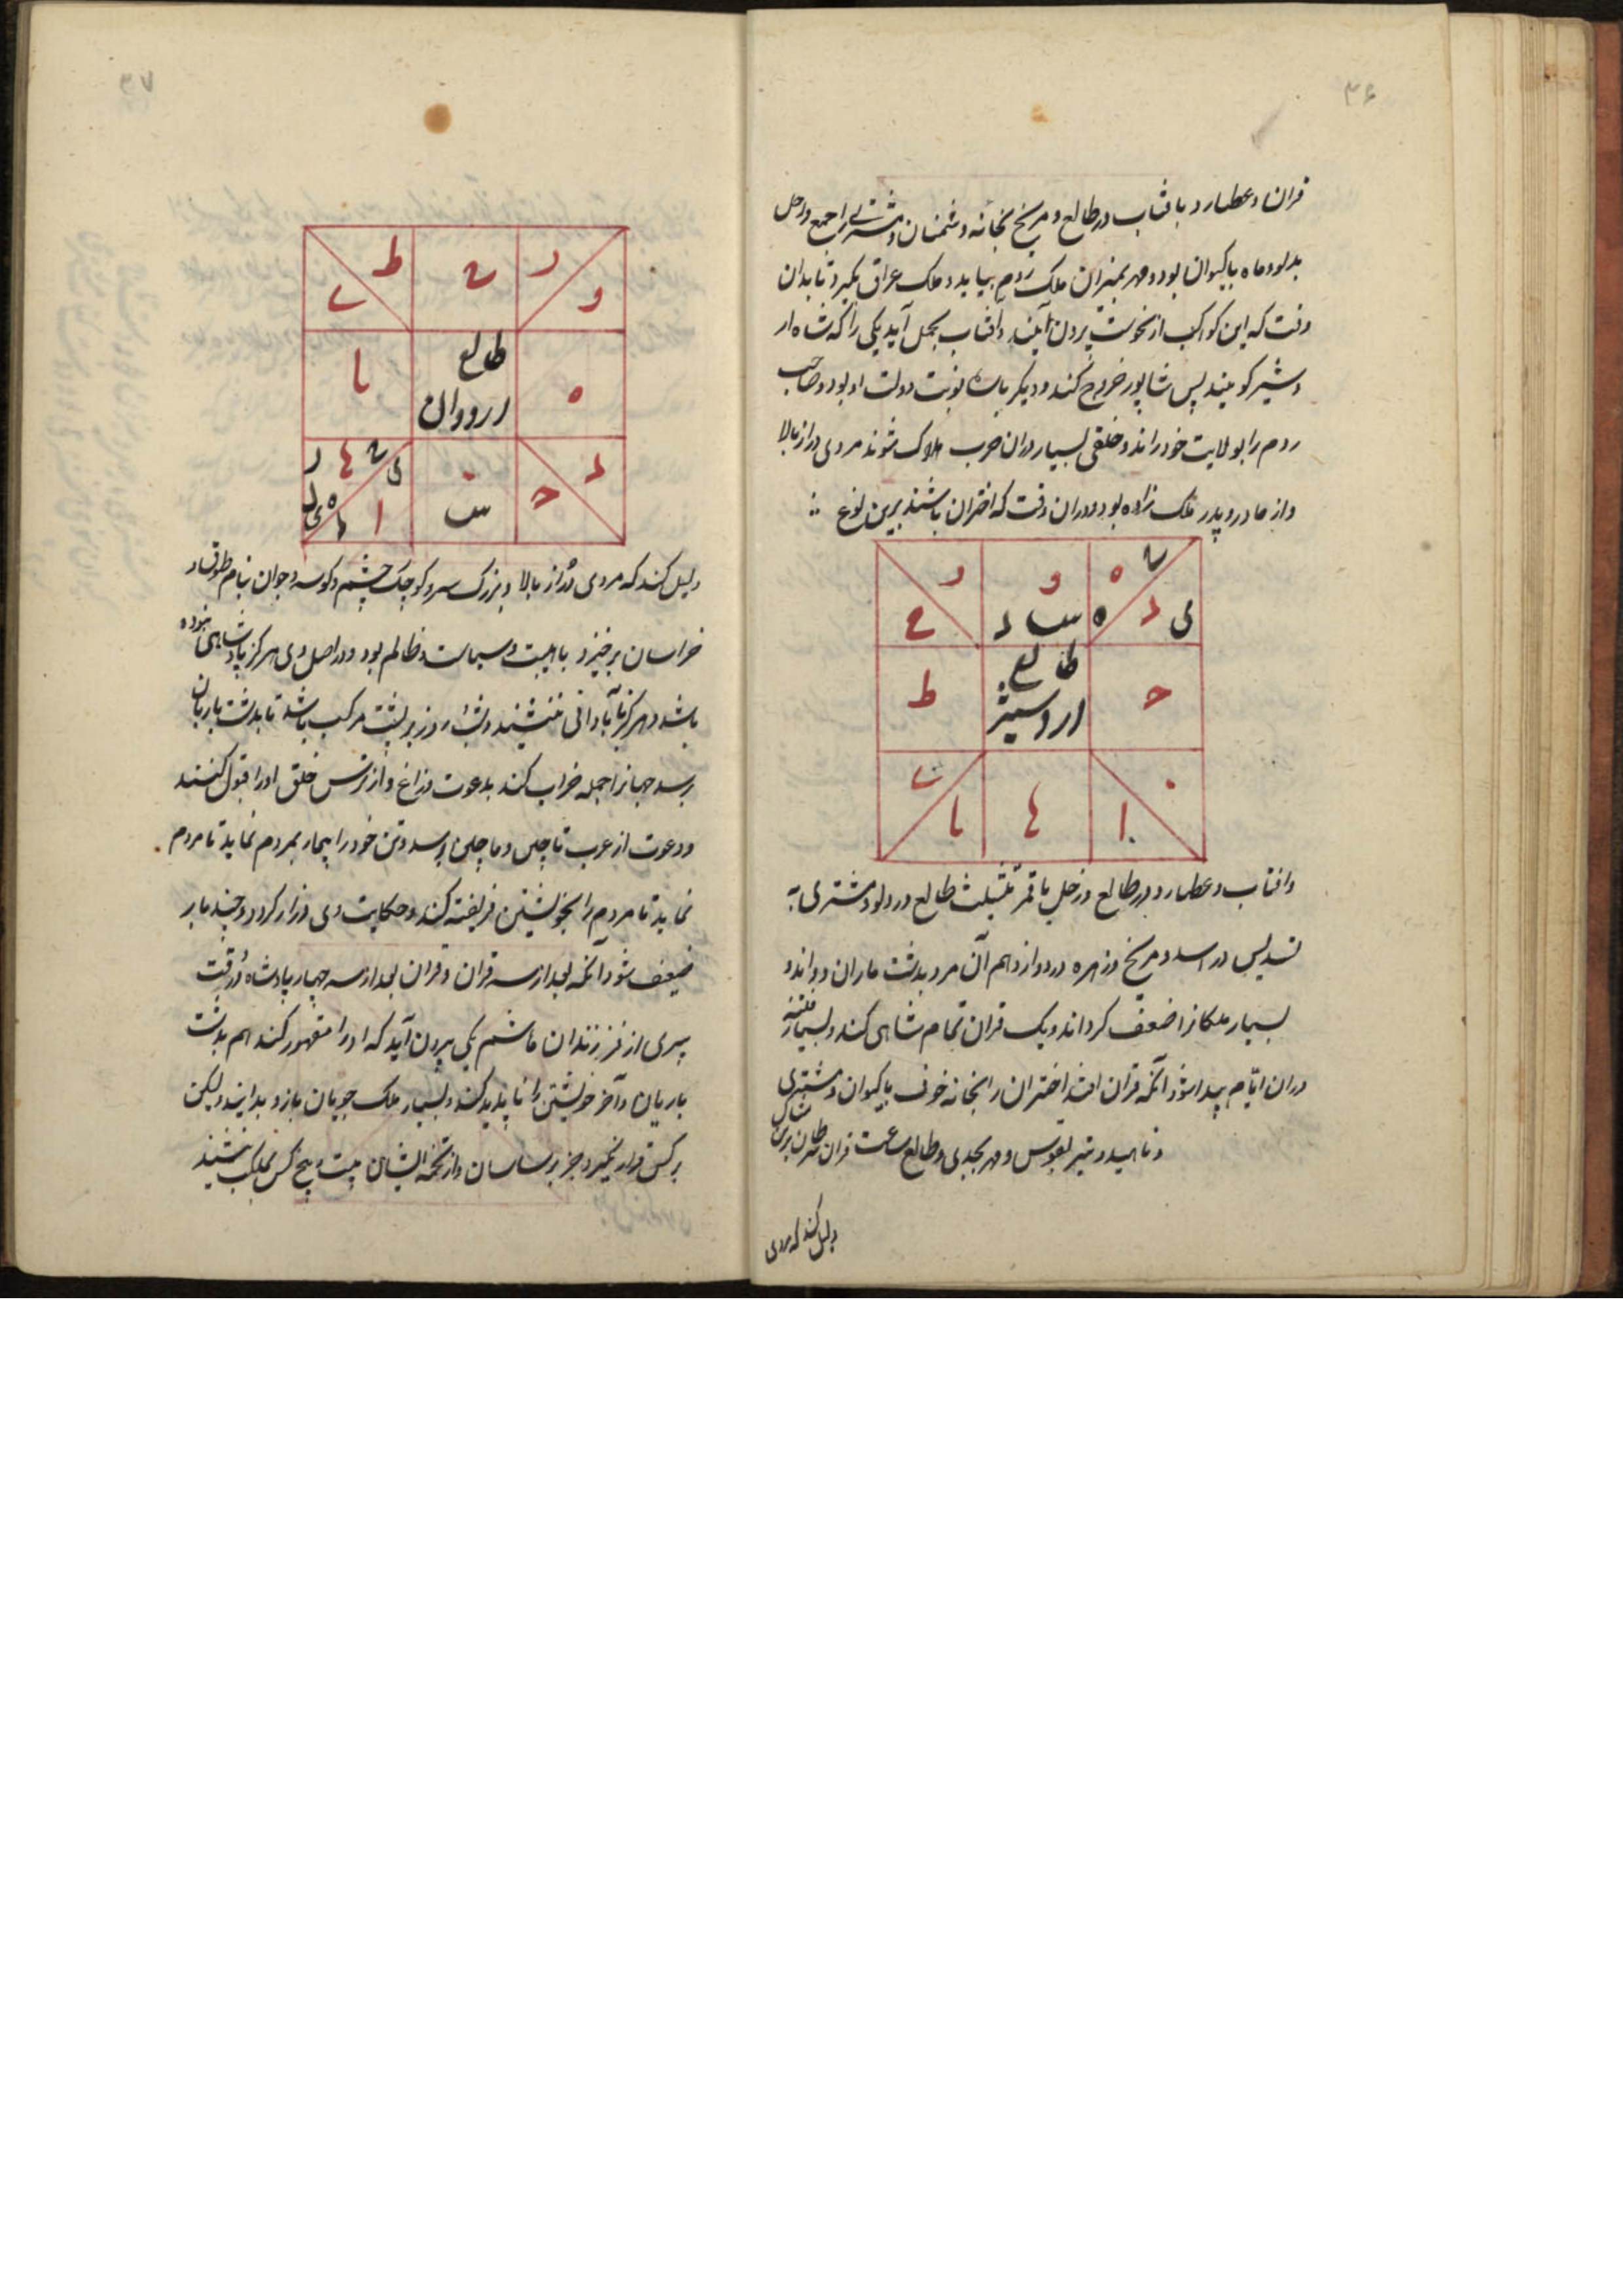 ۳۶
قران و عطارد با فتاب در طالع و مریخ بخانه دشمنان و مشتری راجع و زحل
بدلو و ماه با کیوان بود و مهر بمیزان ملک روم بیاید و ملک عراق بگیرد تا بدان
وقت که این کواکب از نحوست بیرون آیند و افتاب بحمل آید یکی را که شاه ار
دشیر کویند پس شاپور خروج کند و دیکر باره نوبت دولت او بود و صاحب
روم را بولایت خود راند و خلقی بسیار دران حرب هلاک شوند مردی دراز بالا
و از مادر و پدر ملک زاده بود و دران وقت که اختران باشند برین نوع
ر و ه
ح د ی
طالع
اردشیر
ط ح
ا
وافتاب و عطارد در طالع و زحل با قمر بتثلیث طالع در دلو و مشتری به
تسدیس در اسد و مریخ و زهره در دوازدهم آن مرد بدشت ماران دواند و
بسیار ملکانرا ضعف کرداند و یک قران تمام شاهی کند و بسیار فتنه
دران ایام پیدا شود آنکه قران افتد اختران را بخانه خوف با کیوان و مشتری
و ناهید و تیر بقوس و مهر بجدی و طالع ساعت قران سرطان برین شکل
دلیل کند که مردی
۳۷
ط ر و
طالع
اردوان
یا ه
ا د ح
دلیل کند که مردی دراز بالا و بزرک سر و کوچک چشم و کوسه و جوان بنام
خراسان برخیزد با هیبت و سیاست و ظالم بود و در اصل وی هرکز پادشاهی نبوده
باشد و هرکز بآبادانی ننشیند و شب و روز بر پشت مرکب باشد تا بدشت باریان
رسد جهانرا جمله خراب کند بدعوت و زاغ و از ترس خلق او را قبول کنند
و دعوت از عرب تا چین و ماچین برسد و تن خود را بیمار بمردم نماید تا مردم
نماید تا مردم را بخویشتن فریفته کند و حکایت وی دراز کردد و چند بار
ضعیف شود آنکه بعد از سه قران و قران بعد از سه چهار پادشاه در وقت
پیری از فرزندان هاشم یکی بیرون آید که او را مقهور کند هم بدشت
باریان و آخر خویشتن را ناپدید کند و بسیار ملک جویان بازو بدایند ولیکن
بر کس قرار نگیرد جز بر ساسان و از تخمه ایشان بیست و پنج کس بملک بنشیند